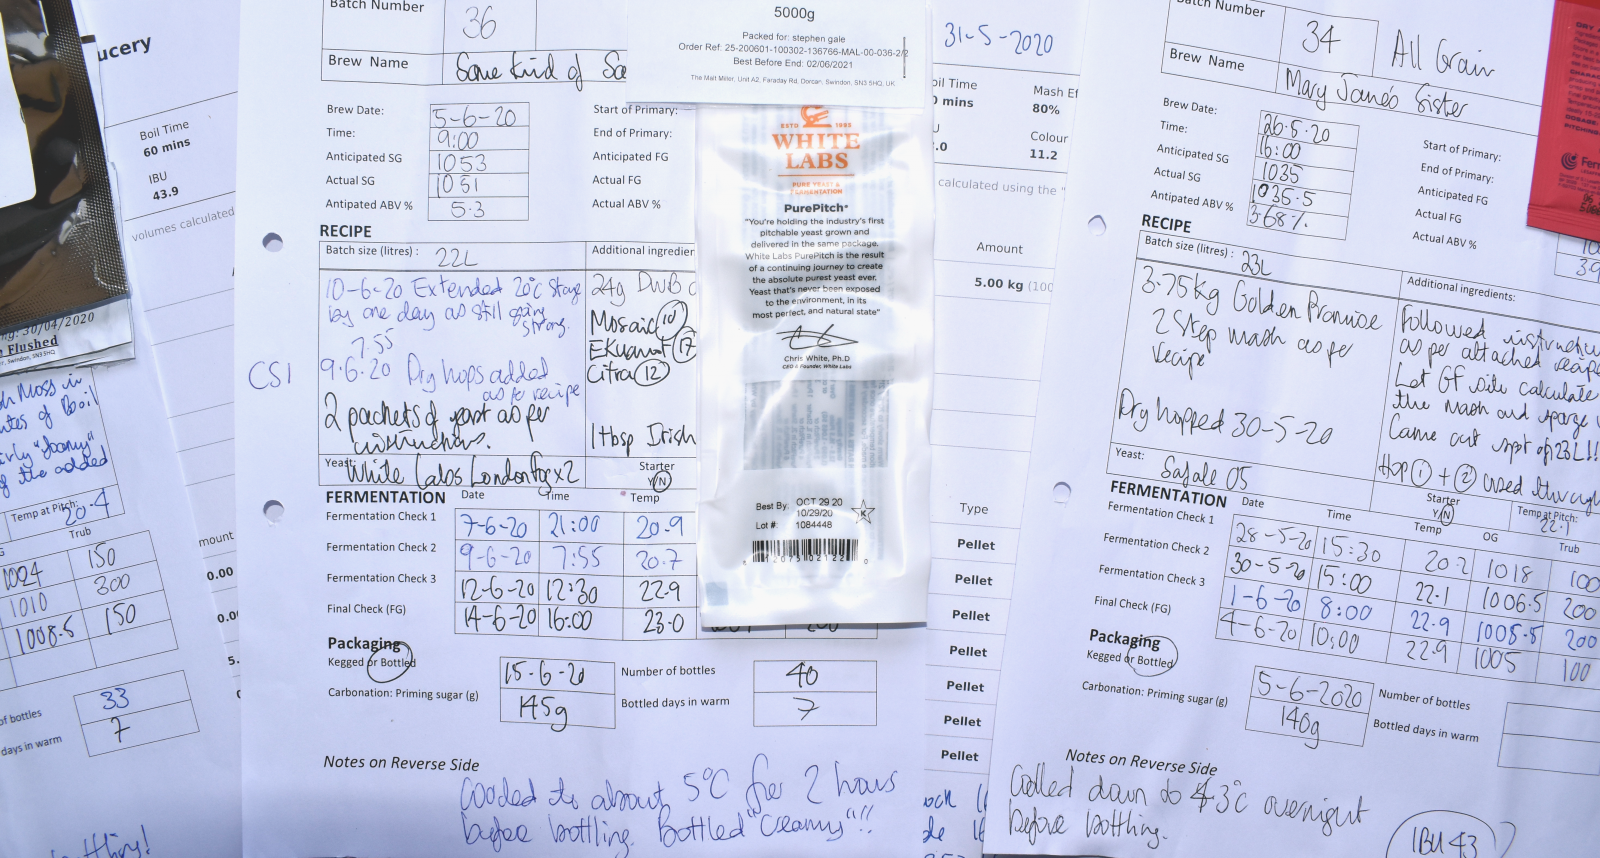 ucery
Boil Time
60 mins
IBU
43.9
volumes calculated
30/04/2020
Flushed
Swindon, SN3 5HQ
Moss in
of Boil
"foamy"
of the added
Temp at Pitch:
20.4
Trub
1024 150
1010 300
1008.5 150
of bottles 33
days in warm 7
bottling!
mount
0.00
0.0
5.
Batch Number 36
Brew Name Some Kind of
Brew Date: 5-6-20
Time: 9:00
Anticipated SG 1053
Actual SG 1051
Antipated ABV % 5.3
Start of Primary:
End of Primary:
Anticipated FG
Actual FG
Actual ABV %
RECIPE
Batch size (litres) : 22L
Additional ingredien
10-6-20 Extended 20°c Stage
by one day as still going
strong.
7.55
9.6.20 Dry hops added
as per recipe
2 packets of yeast as per
instructions.
CS1
24g DWB
Mosaic 10
Ekuanot 17
Citra 12
1tbsp Irish
Yeast: White Labs London Fog x2
Starter
Y/N
FERMENTATION Date Time Temp
Fermentation Check 1 7-6-20 21:00 20.9
Fermentation Check 2 9-6-20 7:55 20.7
Fermentation Check 3 12-6-20 12:30 22.9
Final Check (FG) 14-6-20 16:00 23.0
Packaging
Kegged or Bottled 15-6-20 Number of bottles 40
Carbonation: Priming sugar (g) 145g Bottled days in warm 7
Notes on Reverse Side
Cooled to about 5°C for 2 hours
before bottling. Bottled "creamy"!!
5000g
Packed for: stephen gale
Order Ref: 25-200601-100302-136766-MAL-00-036-2/2
Best Before End: 02/06/2021
The Malt Miller, Unit A2, Faraday Rd, Dorcan, Swindon, SN3 5HQ, UK
ESTD 1995
WHITE
LABS
PURE YEAST &
FERMENTATION
PurePitch®
"You're holding the industry's first
pitchable yeast grown and
delivered in the same package.
White Labs PurePitch is the result
of a continuing journey to create
the absolute purest yeast ever.
Yeast that's never been exposed
to the environment, in its
most perfect, and natural state"
Chris White, Ph.D
CEO & Founder, White Labs
Best By: OCT 29 20
10/29/20
Lot #: 1084448
K
31-5-2020
oil Time
0 mins
Mash Ef
80%
U
.0
Colour
11.2
calculated using the "
Amount
5.00 kg (100
Type
Pellet
Pellet
Pellet
Pellet
Pellet
Pellet
Pellet
Batch Number 34
All Grain
Brew Name Mary Jane's Sister
Brew Date: 26.5.20
Time: 16:00
Anticipated SG 1035
Actual SG 1035.5
Antipated ABV % 3.68%
Start of Primary:
End of Primary:
Anticipated FG
Actual FG
Actual ABV %
RECIPE
Batch size (litres) : 23L
Additional ingredients:
3.75kg Golden Promise
2 Step mash as per
recipe
Dry hopped 30-5-20
Followed instructi
as per attached recipe
Let GF site calculate
the mash and sparge
Came out spot of 23L!!
Hop 1 + 2 used through
Yeast: Safale 05
Starter
Y/N
Temp at Pitch:
22.1
FERMENTATION Date Time Temp OG Trub
Fermentation Check 1 28-5-20 15:30 20.2 1018 100
Fermentation Check 2 30-5-20 15:00 22.1 1006.5 200
Fermentation Check 3 1-6-20 8:00 22.9 1005.5 200
Final Check (FG) 4-6-20 10:00 22.9 1005 100
Packaging
Kegged or Bottled 5-6-2020 Number of bottles
Carbonation: Priming sugar (g) 140g Bottled days in warm
Notes on Reverse Side
Cooled down to 3°c overnight
before bottling.
IBU 43